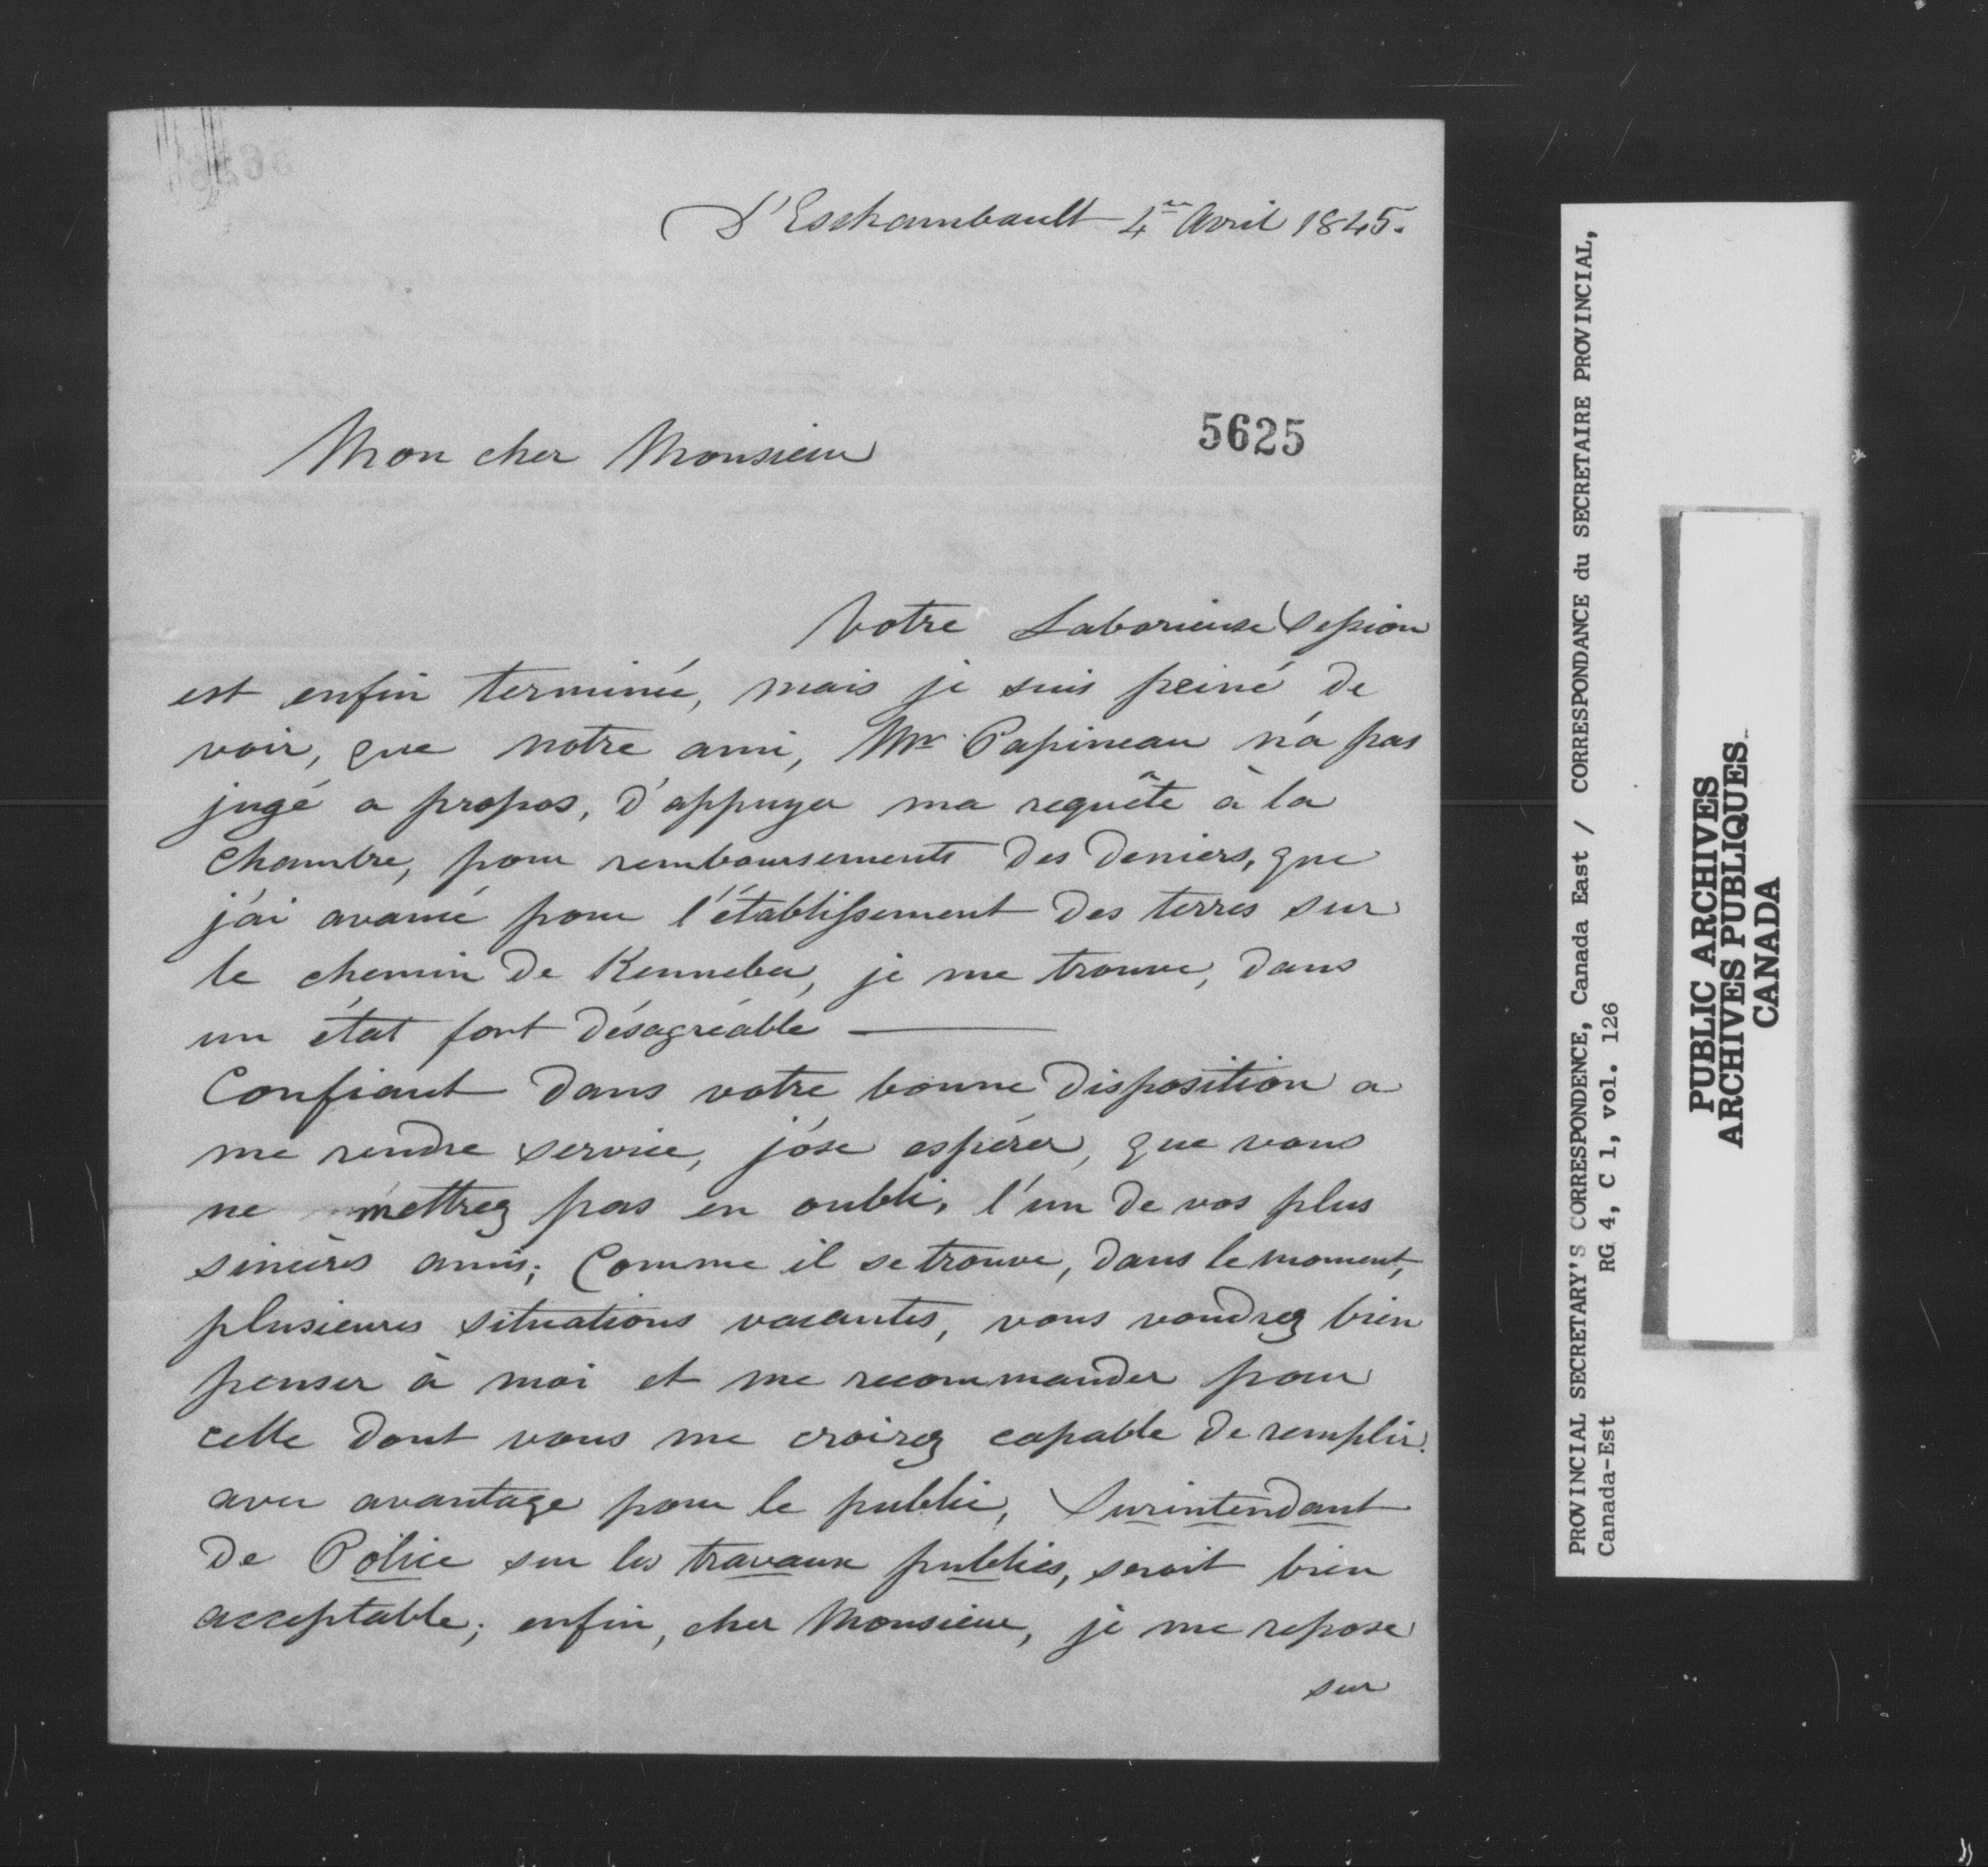 D'Eschambault 4me Avril 1845.
5625
Mon cher Monsieur
Votre Laborieuse Session
est enfin terminée, mais je suis peiné de
voir, que notre ami, Mr Papineau n'a pas
jugé a propos, d'appuyer ma requête à la
Chambre, pour remboursements des deniers, que
j'ai avancé pour l'établissement des terres sur
le chemin de Kennebec, je me trouve, dans
un état fort désagréable —
Confiant dans votre bonne disposition a
me rendre service, j'ose espérer, que vous
ne mettrez pas en oubli, l'un de vos plus
sincères amis; Comme il se trouve, dans le moment,
plusieures situations vacantes, vous voudrez bien
penser à moi et me recommander pour
celle dont vous me croirez capable de remplir
avec avantage pour le public, Surintendant
de Police sur les travaux publics, serait bien
acceptable; enfin, cher Monsieur, je me repose
sur
PROVINCIAL SECRETARY'S CORRESPONDENCE, Canada East / CORRESPONDANCE du SECRETAIRE PROVINCIAL,
Canada-Est RG 4, C 1, vol. 126
PUBLIC ARCHIVES
ARCHIVES PUBLIQUES
CANADA